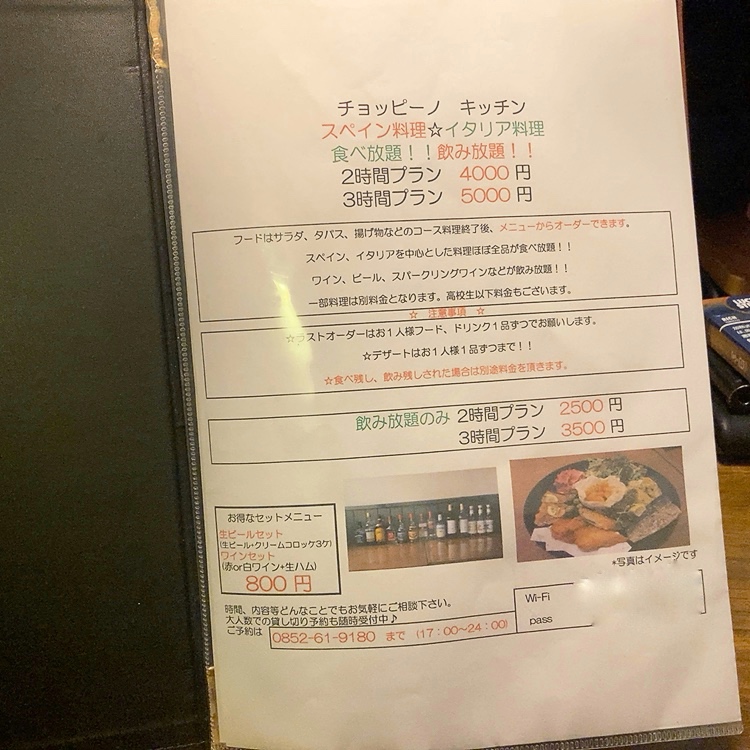 チョッピーノ キッチン
スペイン料理☆イタリア料理
食べ放題！！飲み放題！！
2時間プラン 4000 円
3時間プラン 5000 円
フードはサラダ、タパス、揚げ物などのコース料理終了後、メニューからオーダーできます。
スペイン、イタリアを中心とした料理ほぼ全品が食べ放題！！
ワイン、ビール、スパークリングワインなどが飲み放題！！
一部料理は別料金となります。高校生以下料金もございます。
☆ 注意事項 ☆
☆ラストオーダーはお1人様フード、ドリンク1品ずつでお願いします。
☆デザートはお1人様1品ずつまで！！
☆食べ残し、飲み残しされた場合は別途料金を頂きます。
飲み放題のみ 2時間プラン 2500 円
3時間プラン 3500 円
お得なセットメニュー
生ビールセット
(生ビール・クリームコロッケ3ケ)
ワインセット
(赤or白ワイン+生ハム)
800 円
*写真はイメージです
時間、内容等どんなことでもお気軽にご相談下さい。
大人数での貸し切り予約も随時受付中♪
ご予約は 0852-61-9180 まで (17：00～24：00)
Wi-Fi
pass